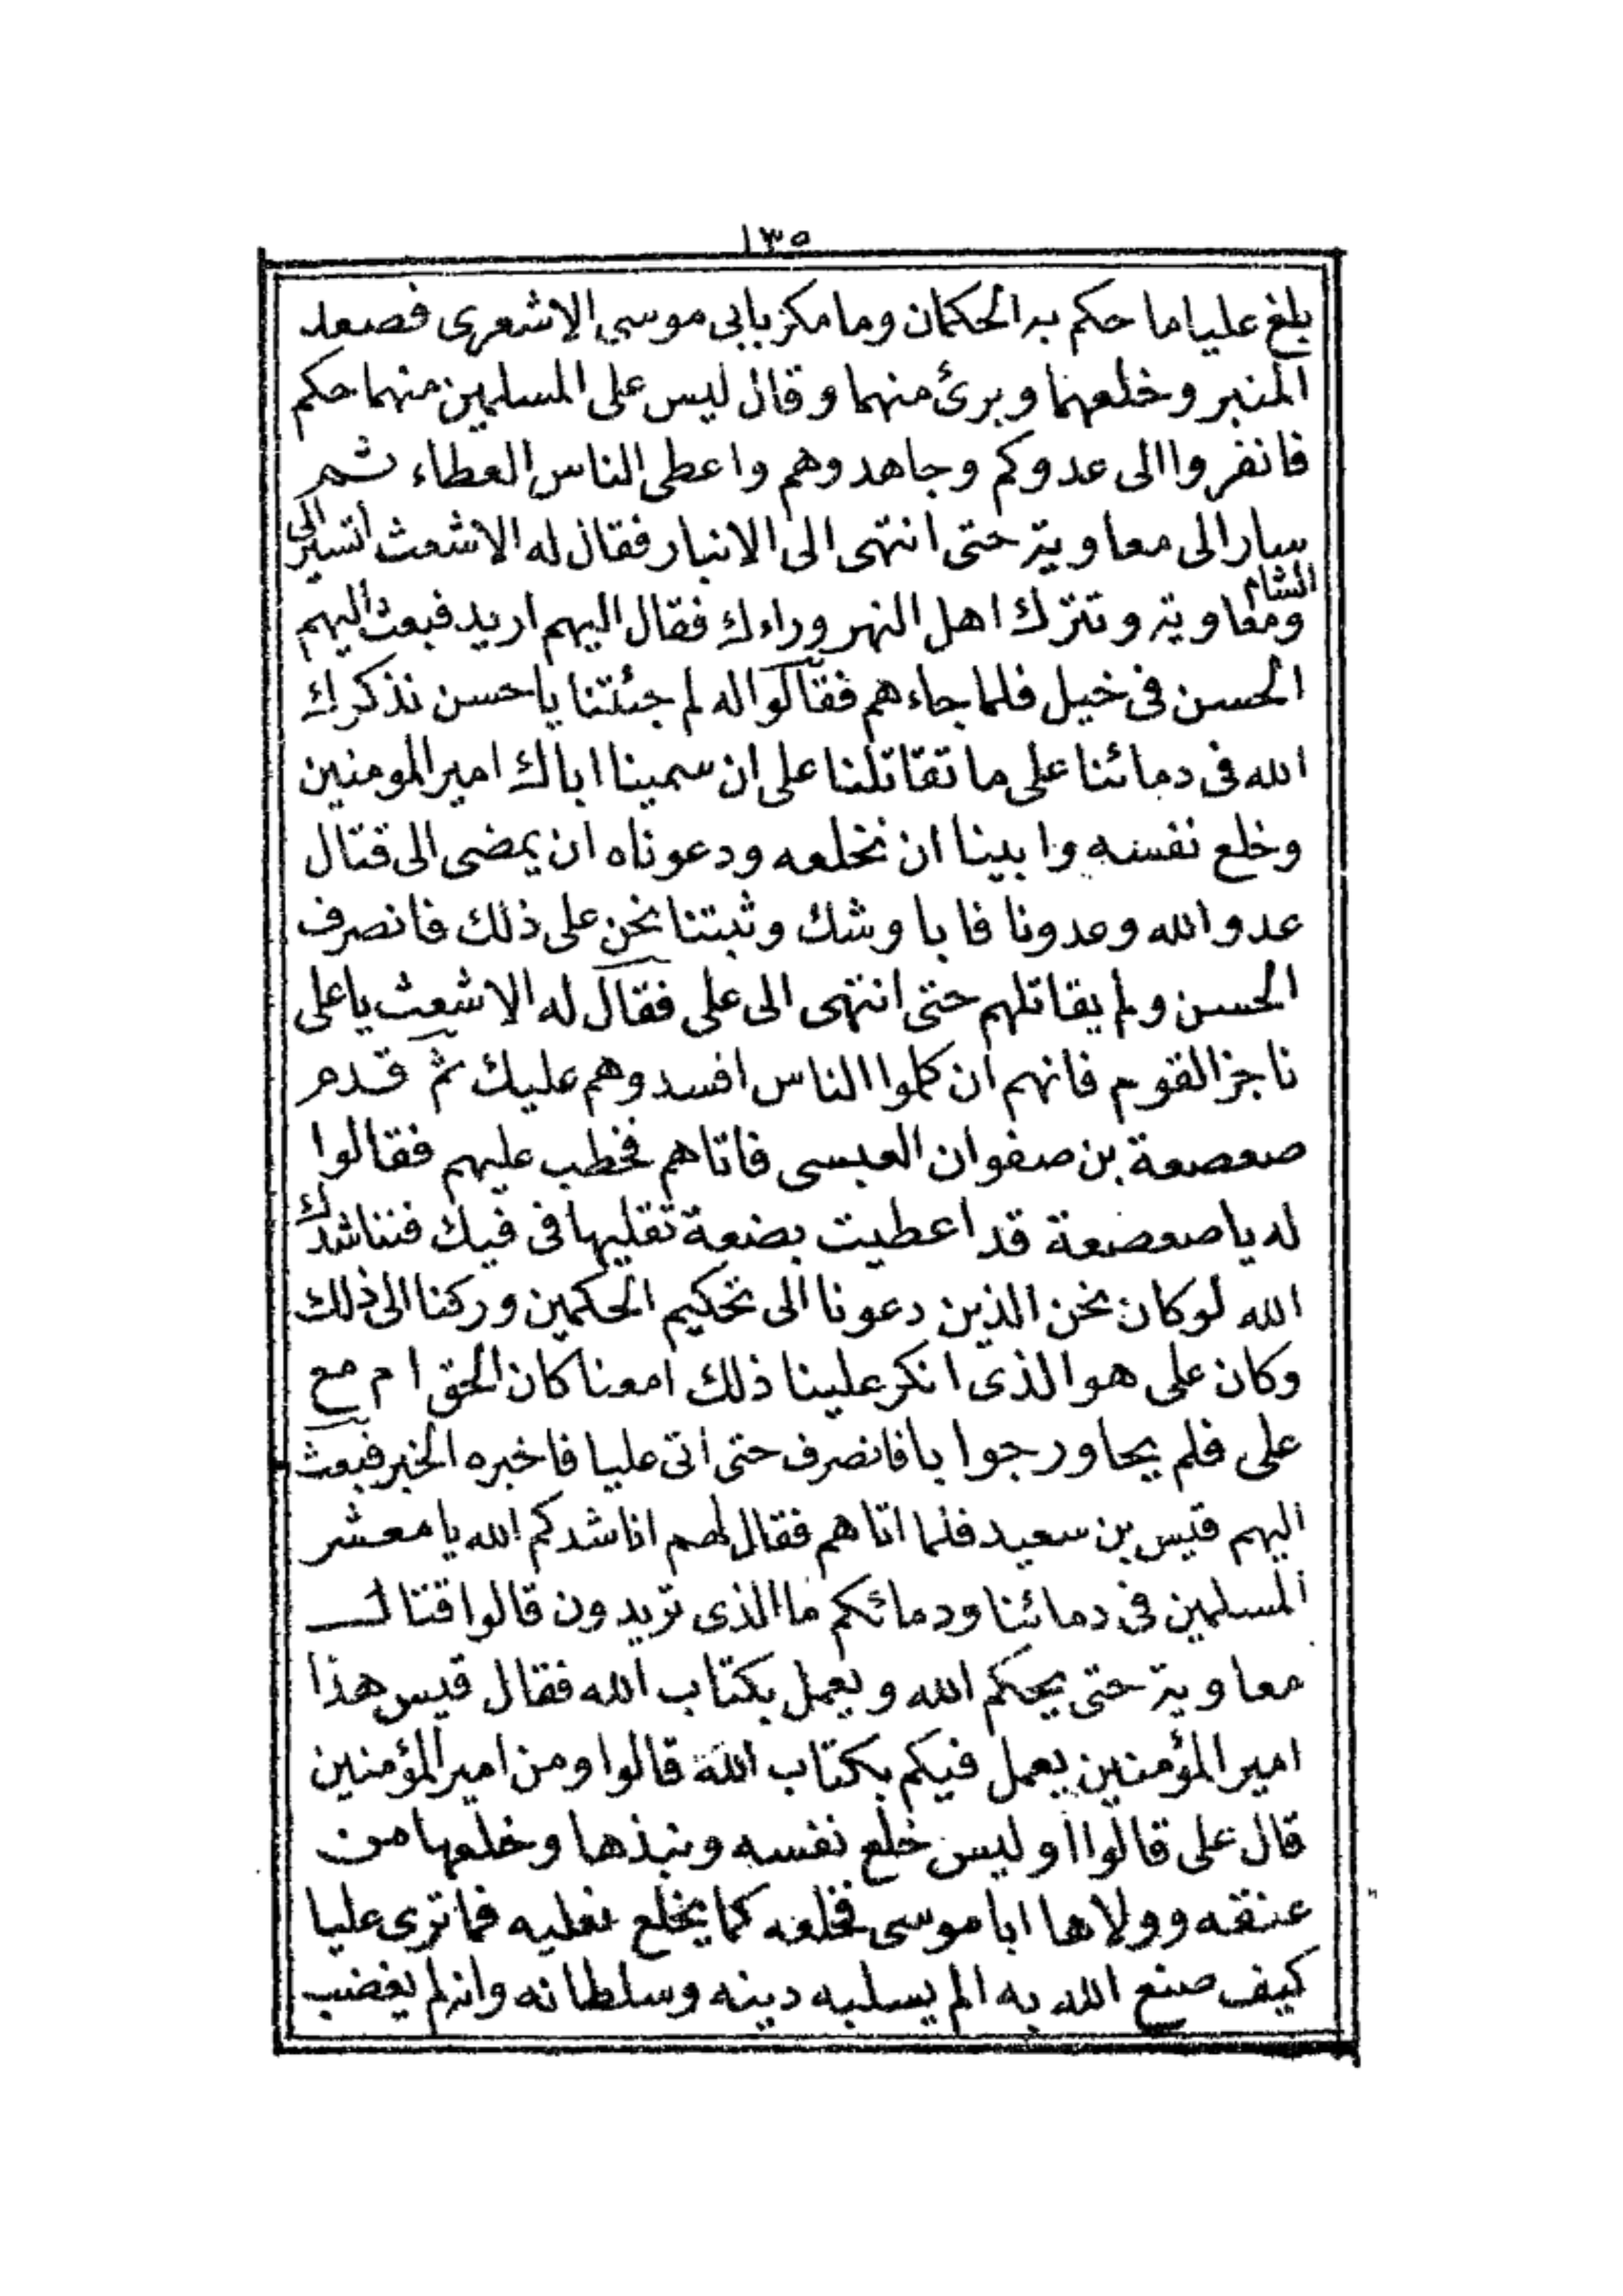 ١٣٥
بلغ عليا ما حكم به الحكمان وما مكر بابى موسي الاشعرى فصعد
المنبر وخلعهما وبرئ منهما وقال ليس على المسلمين منهما حكم
فانفروا الى عدوكم وجاهدوهم واعطى الناس العطاء ثم
سار الى معاوية حتى انتهى الى الانبار فقال له الاشعث اتسير الى
الشام
ومعاوية وتترك اهل النهر وراءك فقال اليهم اريد فبعث اليهم
الحسن فى خيل فلما جاءهم فقالوا له لم جئتنا يا حسن نذكرك
الله فى دمائنا على ما تقاتلنا على ان سمينا اباك امير المومنين
وخلع نفسه وابينا ان نخلعه ودعوناه ان يمضى الى قتال
عدو الله وعدونا فابا وشك وثبتنا نحن على ذلك فانصرف
الحسن ولم يقاتلهم حتى انتهى الى على فقال له الاشعث يا على
ناجز القوم فانهم ان كلموا الناس افسدوهم عليك ثم قدم
صعصعة بن صفوان العبسى فاتاهم فخطب عليهم فقالوا
له يا صعصعة قد اعطيت بضعة تقليها فى فيك فنناشدك
الله لو كان نحن الذين دعونا الى تحكيم الحكمين وركنا الى ذلك
وكان على هو الذى انكر علينا ذلك امعنا كان الحق ام مع
على فلم يحاور جوابا فانصرف حتى اتى عليا فاخبره الخبر فبعث
اليهم قيس بن سعيد فلما اتاهم فقال لهم اناشدكم الله يا معشر
المسلمين فى دمائنا ودمائكم ما الذى تريدون قالوا قتال
معاوية حتى يحكم الله ويعمل بكتاب الله فقال قيس هذا
امير المؤمنين يعمل فيكم بكتاب الله قالوا ومن امير المؤمنين
قال على قالوا اوليس خلع نفسه ونبذها وخلعها من
عنقه وولاها ابا موسى فخلعه كما يخلع نعليه فما ترى عليا
كيف صنع الله به الم يسلبه دينه وسلطانه وانه لم يغضب